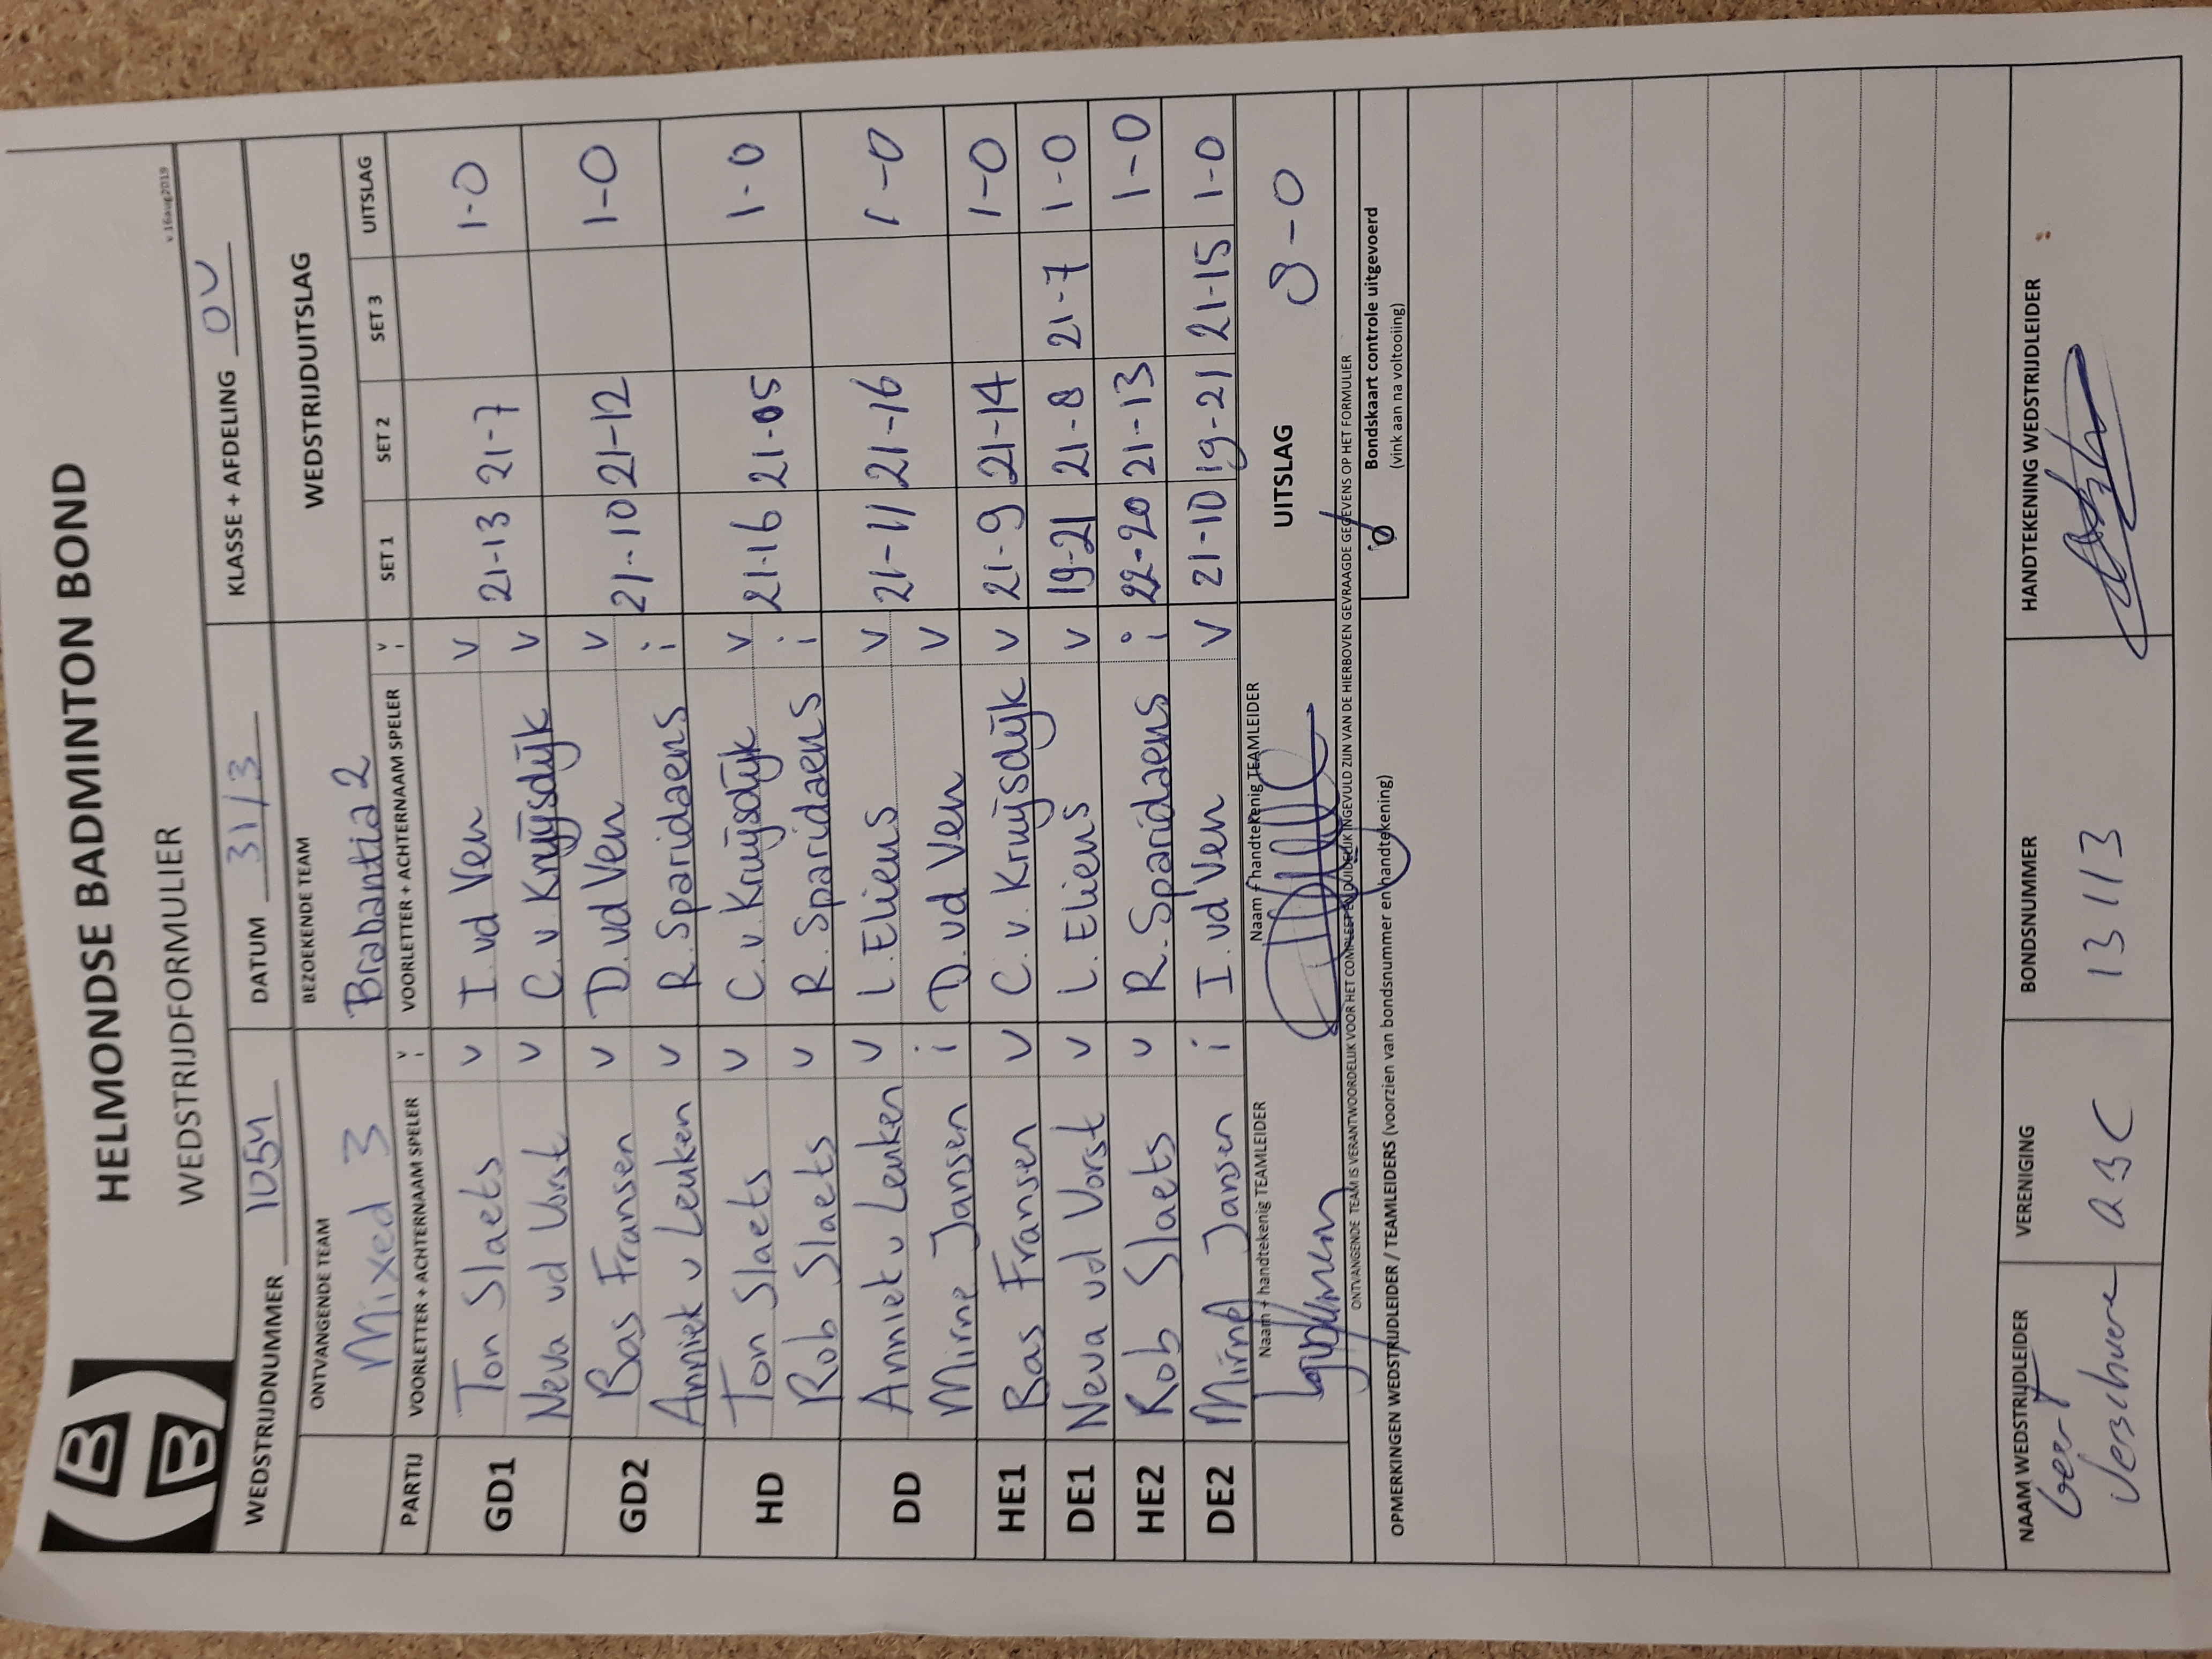 HBB
HELMONDSE BADMINTON BOND
WEDSTRIJDFORMULIER
v.16aug2019
WEDSTRIJDNUMMER 1054 DATUM 31/3 KLASSE + AFDELING OV
ONTVANGENDE TEAM BEZOEKENDE TEAM WEDSTRIJDUITSLAG
Mixed 3 Brabantia 2
PARTIJ VOORLETTER + ACHTERNAAM SPELER v i VOORLETTER + ACHTERNAAM SPELER v i SET 1 SET 2 SET 3 UITSLAG
GD1 Ton Slaets v I. vd Ven v 21-13 21-7 1-0
Neva vd Vorst v C. v Kruijsdijk v
GD2 Bas Fransen v D. vd Ven v 21-10 21-12 1-0
Anniek v Leuken v R. Sparidaens i
HD Ton Slaets v C. v. Kruijsdijk v 21-16 21-05 1-0
Rob Slaets v R. Sparidaens i
DD Anniek v Leuken v L. Eliens v 21-11 21-16 1-0
Mirne Jansen i D. vd Ven v
HE1 Bas Fransen v C. v. Kruijsdijk v 21-9 21-14 1-0
DE1 Neva vd Vorst v L. Eliens v 19-21 21-8 21-7 1-0
HE2 Rob Slaets v R. Sparidaens i 22-20 21-13 1-0
DE2 Mirne Jansen i I. vd Ven v 21-10 19-21 21-15 1-0
Naam + handtekenig TEAMLEIDER Naam + handtekenig TEAMLEIDER UITSLAG 8-0
ONTVANGENDE TEAM IS VERANTWOORDELIJK VOOR HET COMPLEET EN DUIDELIJK INGEVULD ZIJN VAN DE HIERBOVEN GEVRAAGDE GEGEVENS OP HET FORMULIER
OPMERKINGEN WEDSTRIJDLEIDER / TEAMLEIDERS (voorzien van bondsnummer en handtekening)
Bondskaart controle uitgevoerd
(vink aan na voltooiing)
NAAM WEDSTRIJDLEIDER VERENIGING BONDSNUMMER HANDTEKENING WEDSTRIJDLEIDER
Geert Verschuere BC 13113